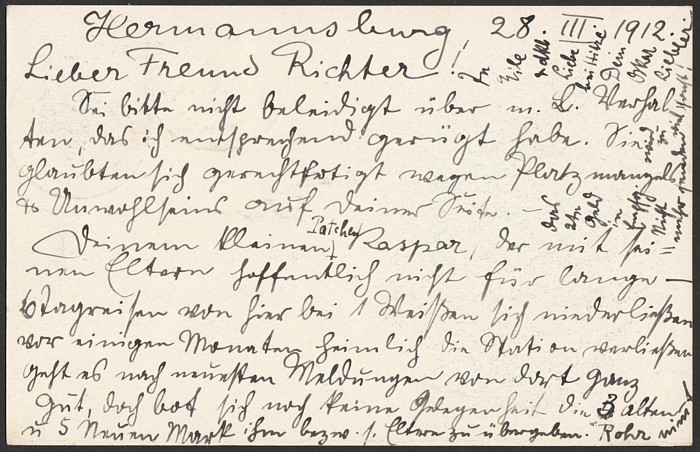 Hermannsburg, 28. III. 1912.
Lieber Freund Richter!
Sei bitte nicht beleidigt über m. L. Verhal
ten, das ich entsprechend gerügt habe. Sie
glaubten sich gerechtfertigt wegen Platzmangels
& Unwohlseins auf Deiner Seite. –
Deinem kleinen Patchen Kaspar, der mit sei=
nen Eltern hoffentlich nicht für lange –
6 Tagreisen von hier bei 1 Weißen sich niederließen
vor einigen Monaten heimlich die Station verließen
geht es nach neuesten Meldungen von dort ganz
gut, doch bot sich noch keine Gelegenheit die 3 alten
u 5 Neuen Mark ihm bezw. s. Eltern zu übergeben. Rohr nimmt
das
Geld
In Eile
Liebe
Dein
Oskar
Liebler.